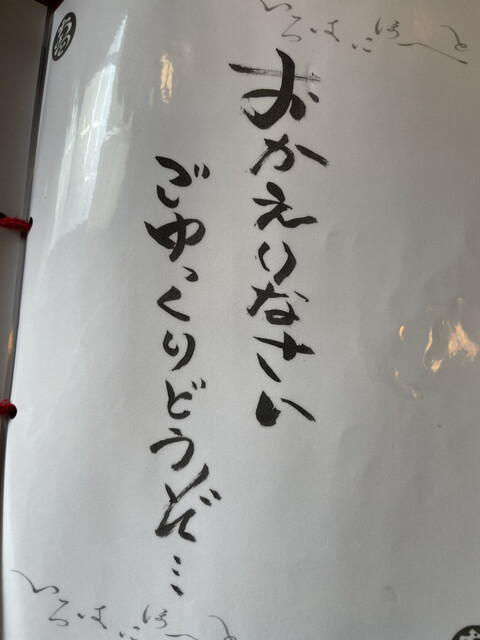 いろはにほへと
おかえりなさい
ごゆっくりどうぞ…
いろはにほへと